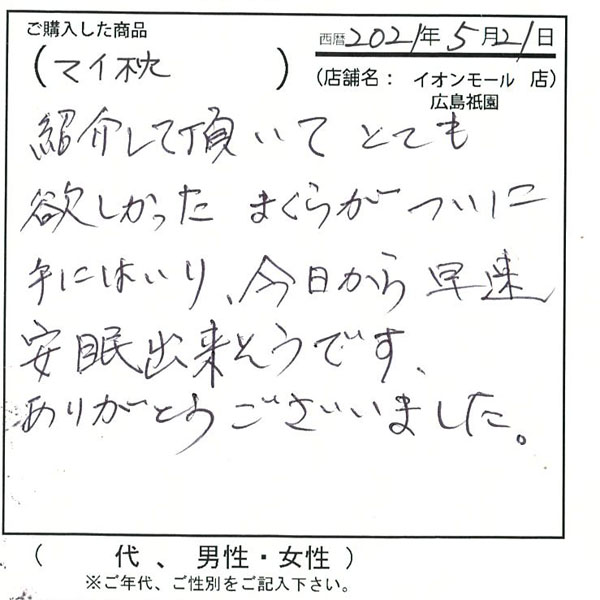 ご購入した商品
西暦2021年5月21日
(マイ枕)
(店舗名: イオンモール 店)
広島祇園
紹介して頂いてとても
欲しかったまくらがついに
手にはいり、今日から早速
安眠出来そうです、
ありがとうございました。
( 代、男性・女性)
※ご年代、ご性別をご記入下さい。